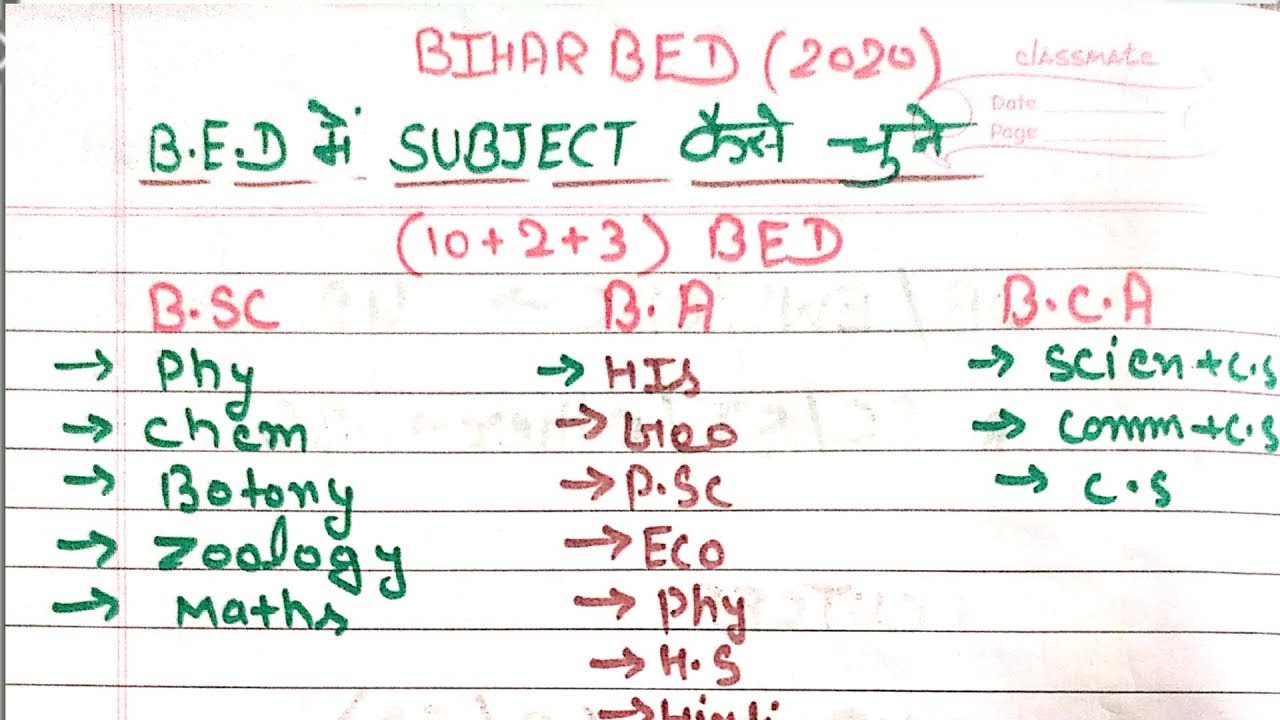 BIHAR BED (2020)
classmate
Date
Page
B.E.D में SUBJECT कैसे चुने
(10+2+3) BED
B.SC B.A B.C.A
→ Phy → HIS → Scien+C.S
→ Chem → Geo → Comm+C.S
→ Botony → P.SC → C.S
→ Zoology → ECO
→ Maths → Phy
→ H.S
→ Hindi